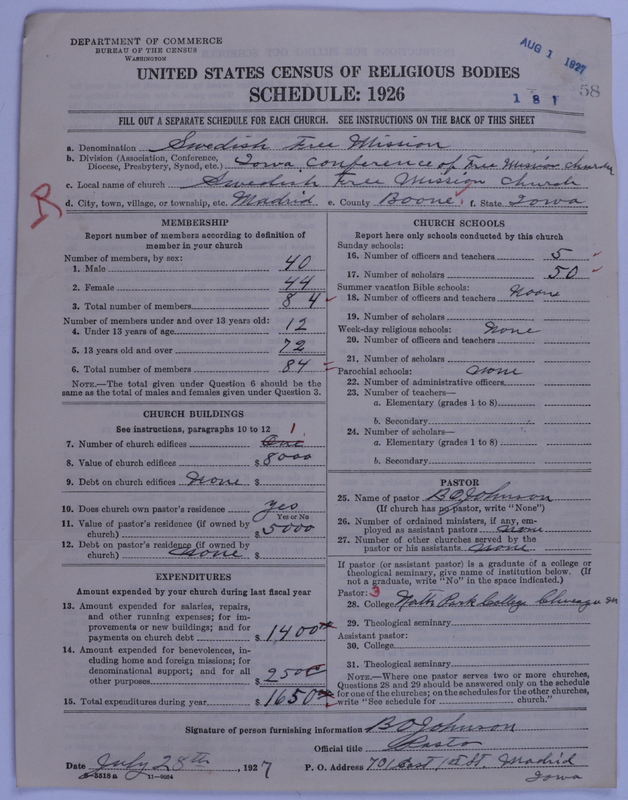 DEPARTMENT OF COMMERCE
BUREAU OF THE CENSUS
WASHINGTON
AUG 1 1927
UNITED STATES CENSUS OF RELIGIOUS BODIES
SCHEDULE: 1926
1 8 1
58
FILL OUT A SEPARATE SCHEDULE FOR EACH CHURCH. SEE INSTRUCTIONS ON THE BACK OF THIS SHEET
a. Denomination Swedish Free Mission
b. Division (Association, Conference, Diocese, Presbytery, Synod, etc.) Iowa Conference of Free Mission Church
c. Local name of church Swedish Free Mission Church
R
d. City, town, village, or township, etc. Madrid e. County Boone f. State Iowa
MEMBERSHIP
Report number of members according to definition of
member in your church
Number of members, by sex:
1. Male 40
2. Female 44
3. Total number of members 84
Number of members under and over 13 years old:
4. Under 13 years of age 12
5. 13 years old and over 72
6. Total number of members 84
NOTE.—The total given under Question 6 should be
same as the total of males and females given under Question 3.
CHURCH BUILDINGS
See instructions, paragraphs 10 to 12
7. Number of church edifices One 1
8. Value of church edifices $8000
9. Debt on church edifices None $
10. Does church own pastor's residence yes
Yes or No
11. Value of pastor's residence (if owned by
church) $5000
12. Debt on pastor's residence (if owned by
church) None $
EXPENDITURES
Amount expended by your church during last fiscal year
13. Amount expended for salaries, repairs,
and other running expenses; for im-
provements or new buildings; and for
payments on church debt $1400
14. Amount expended for benevolences, in-
cluding home and foreign missions; for
denominational support; and for all
other purposes $250
15. Total expenditures during year $1650
CHURCH SCHOOLS
Report here only schools conducted by this church
Sunday schools:
16. Number of officers and teachers 5
17. Number of scholars 50
Summer vacation Bible schools:
18. Number of officers and teachers None
19. Number of scholars
Week-day religious schools: None
20. Number of officers and teachers
21. Number of scholars
Parochial schools: None
22. Number of administrative officers
23. Number of teachers—
a. Elementary (grades 1 to 8)
b. Secondary
24. Number of scholars—
a. Elementary (grades 1 to 8)
b. Secondary
PASTOR
25. Name of pastor B O Johnson
(If church has no pastor, write "None")
26. Number of ordained ministers, if any, em-
ployed as assistant pastors None
27. Number of other churches served by the
pastor or his assistants None
If pastor (or assistant pastor) is a graduate of a college or
theological seminary, give name of institution below. (If
not a graduate, write "No" in the space indicated.)
Pastor: 3
28. College North Park College Chicago Ill
29. Theological seminary
Assistant pastor:
30. College
31. Theological seminary
NOTE.—Where one pastor serves two or more churches,
Questions 28 and 29 should be answered only on the schedule
for one of the churches; on the schedules for the other churches,
write "See schedule for church."
Signature of person furnishing information B O Johnson
Official title Pastor
Date July 28th, 1927 P. O. Address 701 East 1st St. Madrid
Iowa
8-5518a 11-9064